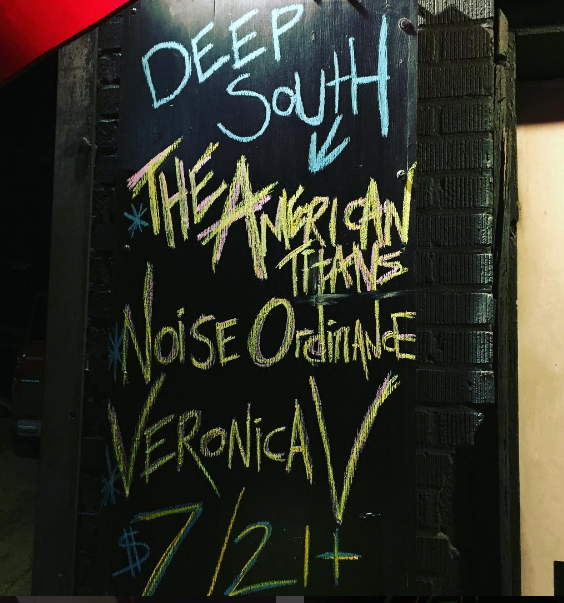 DEEP
SOUTH
THE AMERICAN
TITANS
NOISE ORDINANCE
VERONICA V
$7/21+